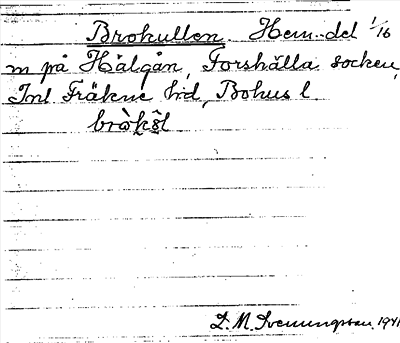 Brokullen. Hem.-del 1/16
m på Hålgån, Forshälla socken,
Inl Fräkne hrd, Bohus l.
D. M. Svenningsson. 1941